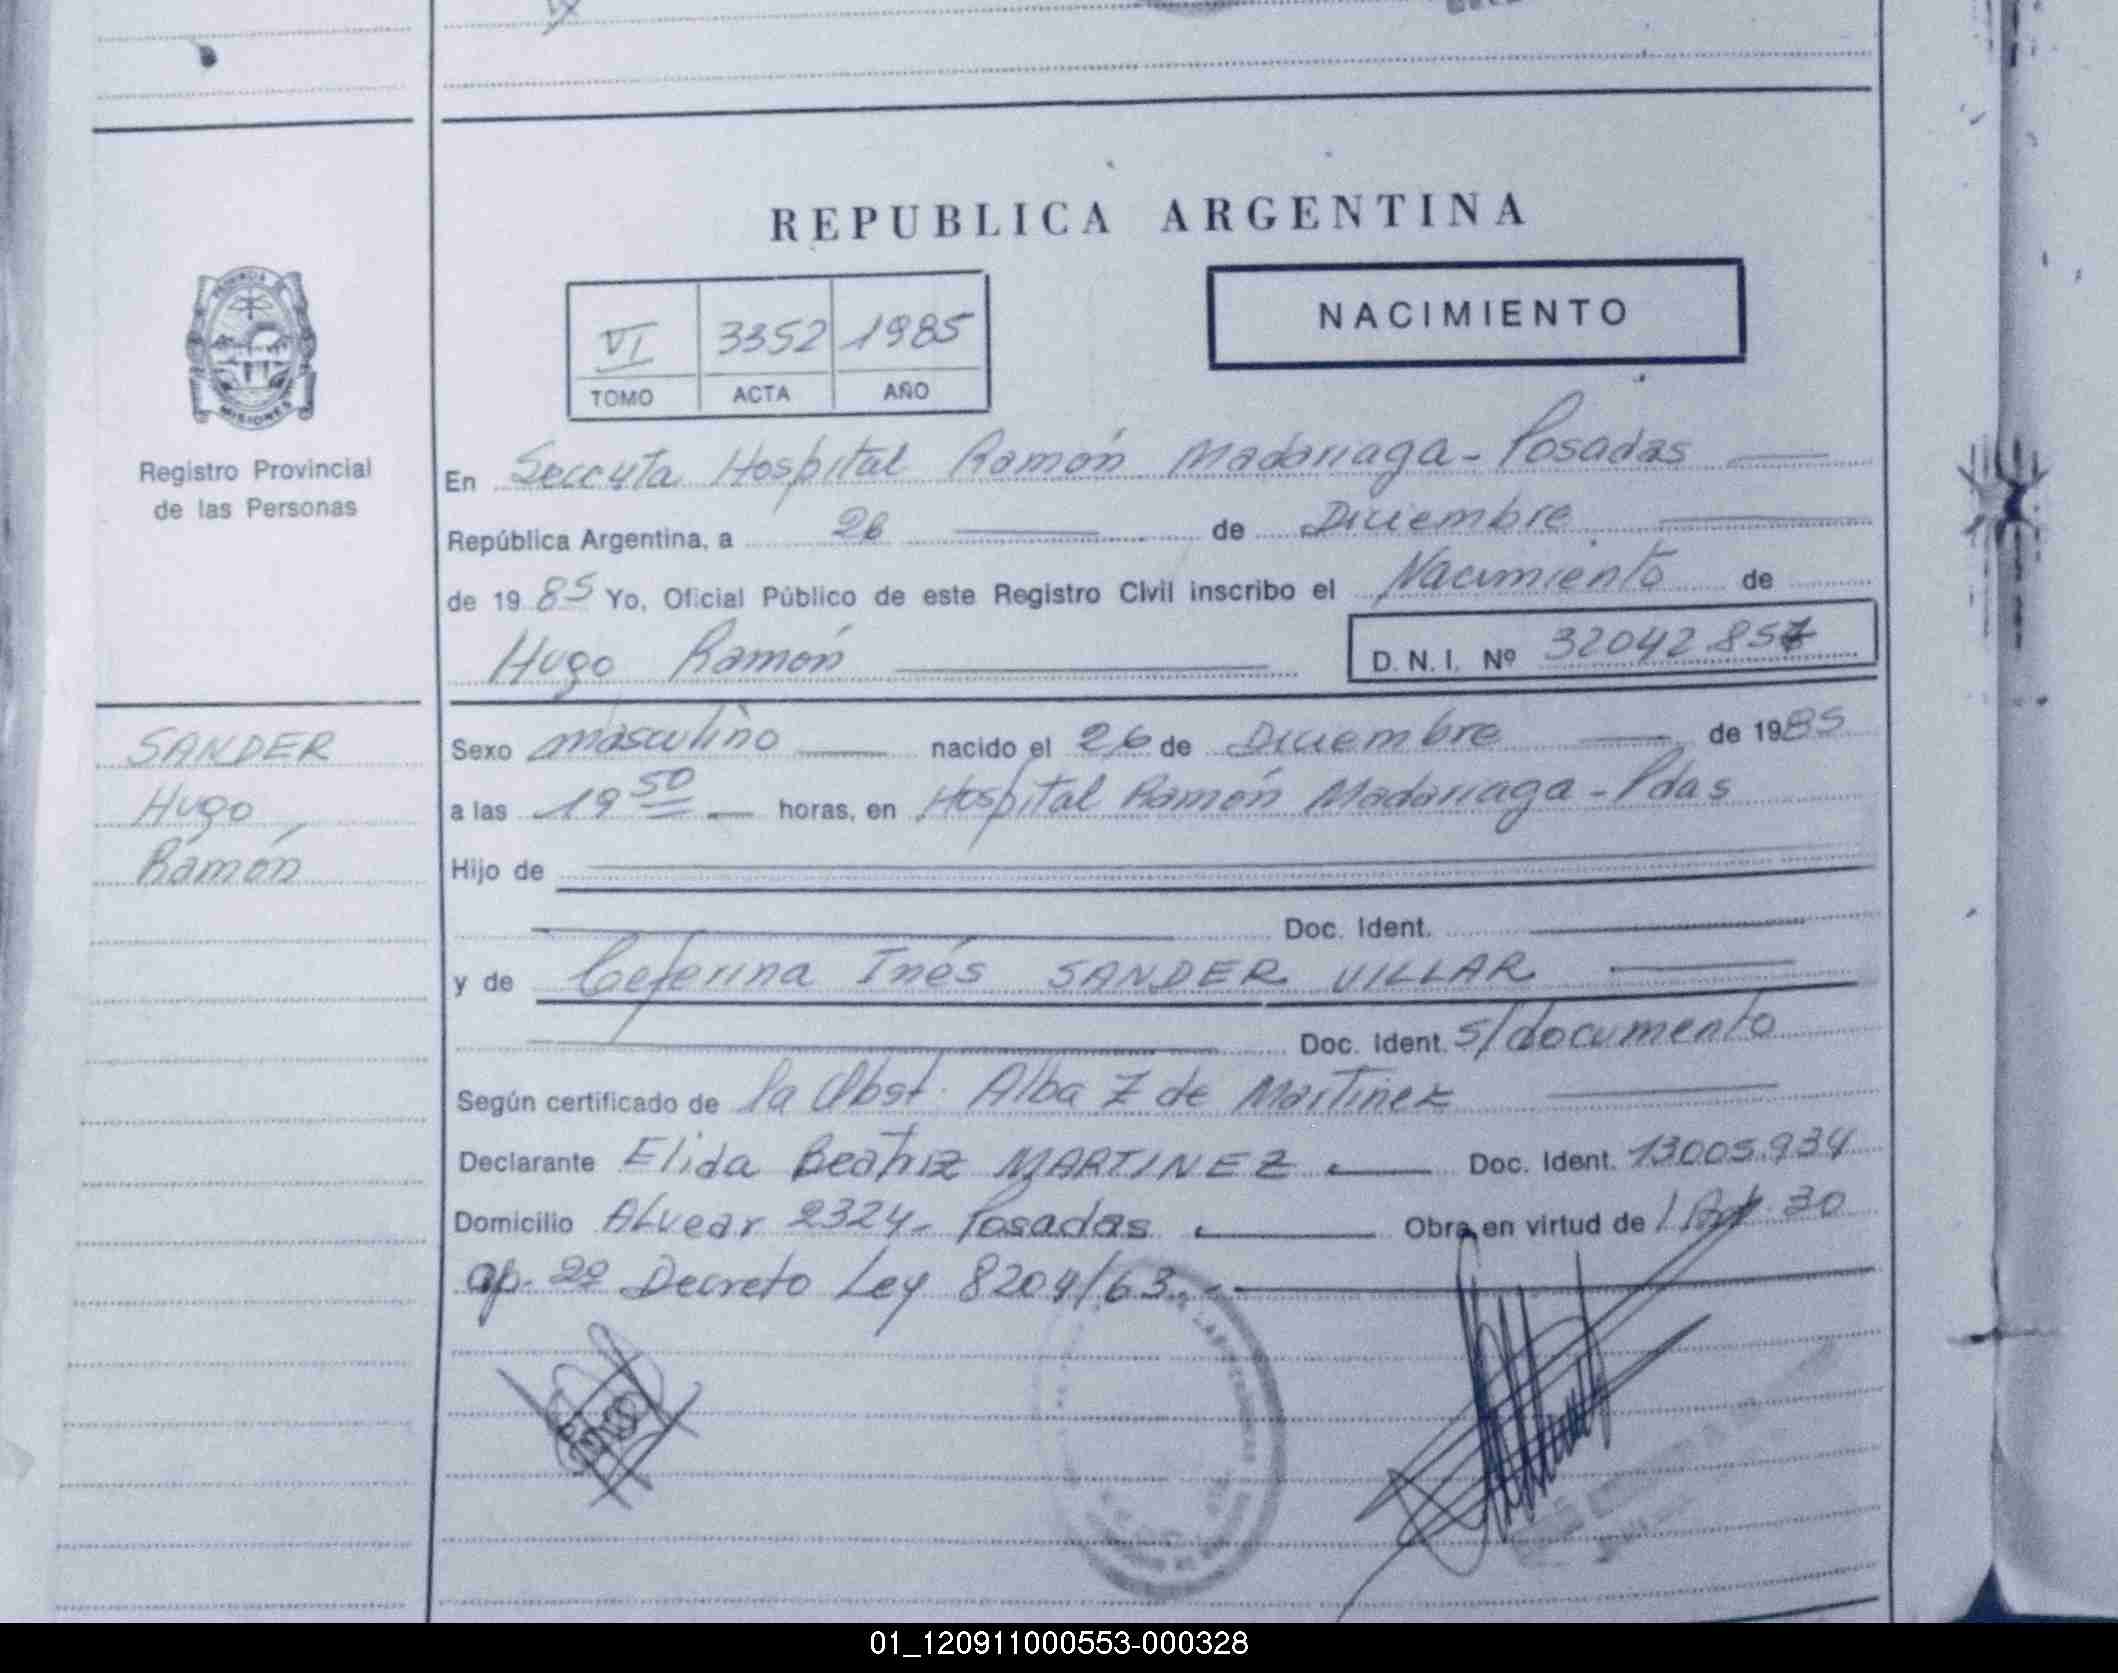 REPUBLICA ARGENTINA
VI 3352 1985
TOMO ACTA AÑO
NACIMIENTO
PROVINCIA
MISIONES
Registro Provincial
de las Personas
En Seccyta Hospital Ramón Madariaga - Posadas
República Argentina, a 26 de Diciembre
de 1985 Yo, Oficial Público de este Registro Civil inscribo el Nacimiento de
Hugo Ramón D. N. I. Nº 32042857
SANDER
Hugo
Ramón
Sexo masculino nacido el 26 de Diciembre de 1985
a las 19 50 horas, en Hospital Ramón Madariaga - Pdas
Hijo de
Doc. Ident.
y de Ceferina Inés SANDER VILLAR
Doc. Ident. s/documento
Según certificado de la Obst. Alba Z de Martinez
Declarante Elida Beatriz MARTINEZ Doc. Ident. 13005.934
Domicilio Alvear 2324 - Posadas Obra en virtud de l 30
ap. 2º Decreto Ley 8204/63.
01_120911000553-000328